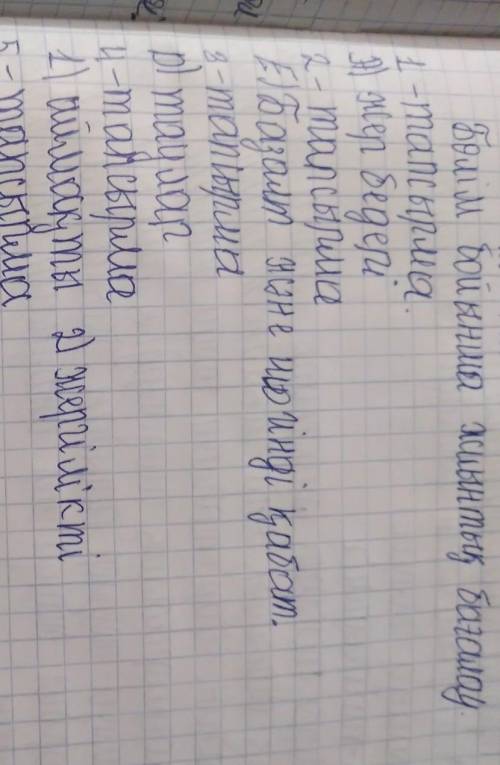 Бөлім бойынша жиынтық бағалау.
1-тапсырма.
А) жер бедері
2-тапсырма
Е) Базальт және шөгінді қабат.
3-тапсырма
D) таулар
4-тапсырма
1) аймақты 2) жергілікті
5-тапсырма